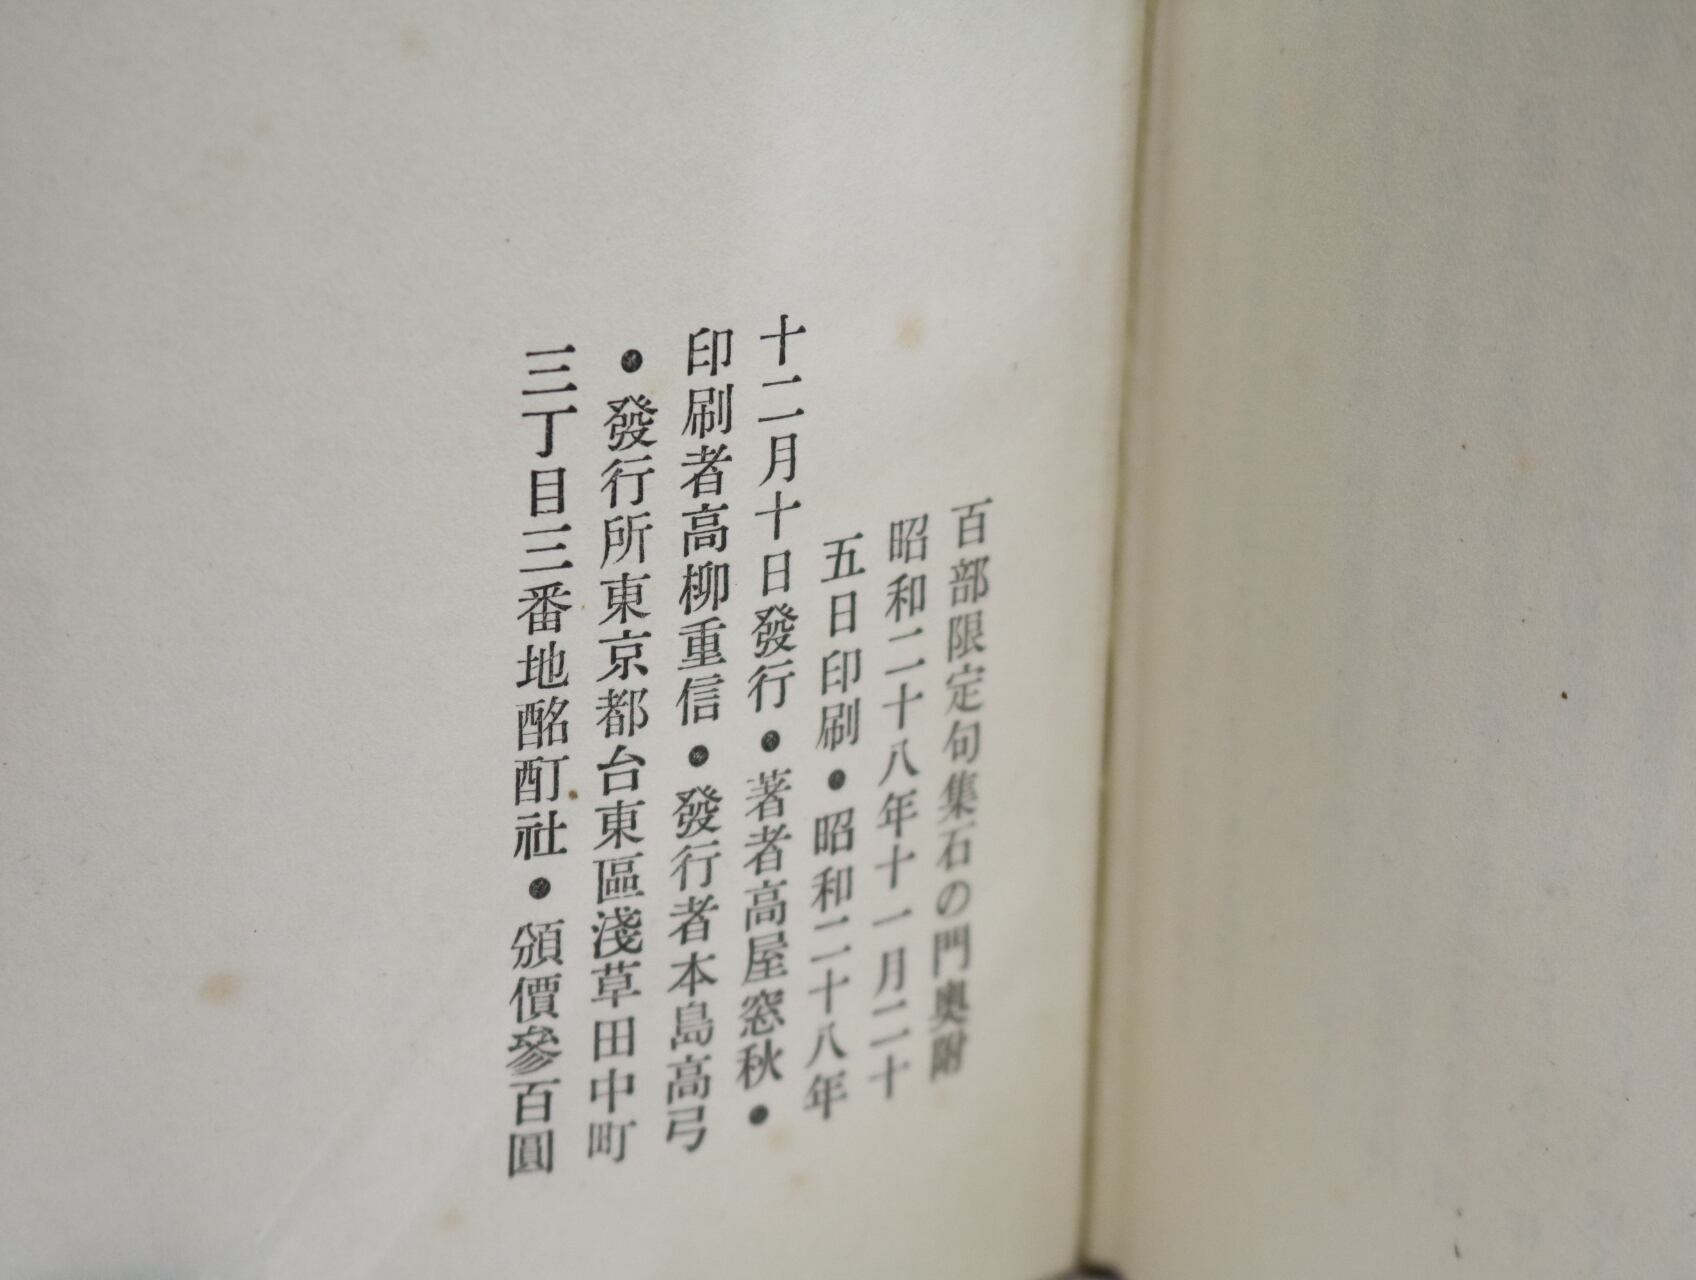 百部限定句集石の門奧附
昭和二十八年十一月二十
五日印刷●昭和二十八年
十二月十日發行●著者高屋窓秋●
印刷者高柳重信●發行者本島高弓
●發行所東京都台東區淺草田中町
三丁目三番地酩酊社●頒價參百圓